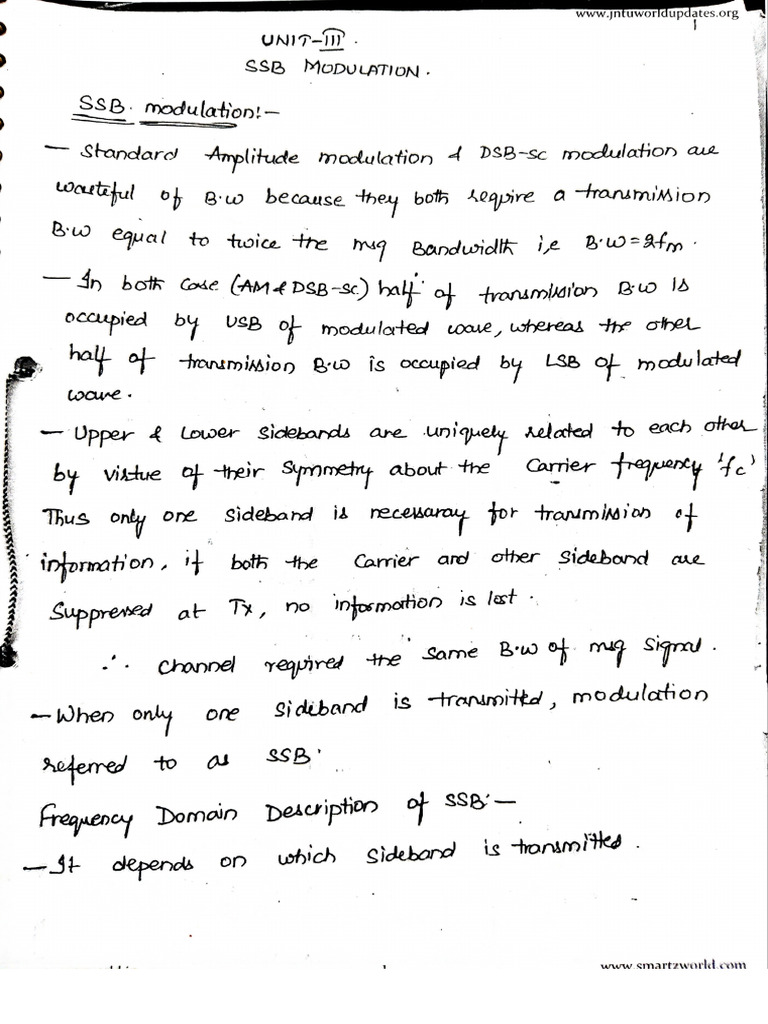 www.jntuworldupdates.org
1
UNIT-III.
SSB MODULATION.
SSB. modulation:-
- Standard Amplitude modulation & DSB-SC modulation are
wasteful of B.W because they both require a transmission
B.W equal to twice the msg Bandwidth i,e B.W=2fm.
- In both case (AM & DSB-SC) half of transmission B.W is
occupied by USB of modulated wave, whereas the other
half of transmission B.W is occupied by LSB of modulated
wave.
- Upper & Lower Sidebands are uniquely related to each other
by virtue of their Symmetry about the Carrier frequency 'fc'
Thus only one sideband is necessaray for transmission of
information, if both the Carrier and other Sideband are
Suppressed at Tx, no information is lost.
∴ Channel required the same B.W of msg Signal.
- When only one Sideband is transmitted, modulation
referred to as SSB.
Frequency Domain Description of SSB:-
- It depends on which Sideband is transmitted.
1
www.smartzworld.com